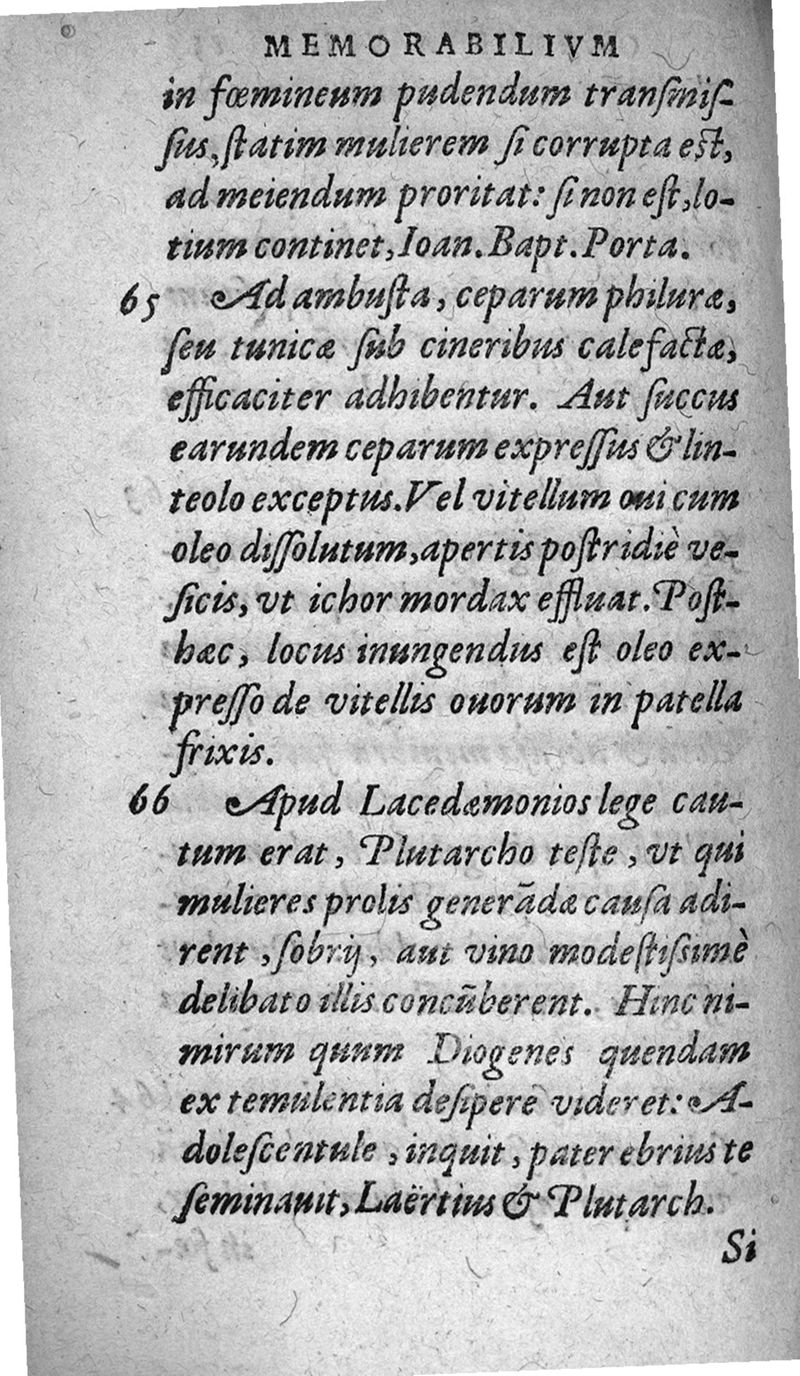 MEMORABILIVM
in fœmineum pudendum tranſmiſ-
ſus, ſtatim mulierem ſi corrupta eſt,
ad meiendum proritat: ſi non eſt, lo-
tium continet, Ioan. Bapt. Porta.
65 Ad ambuſta, ceparum philuræ,
ſeu tunicæ ſub cineribus calefactæ,
efficaciter adhibentur. Aut ſuccus
earundem ceparum expreſſus & lin-
teolo exceptus. Vel vitellum oui cum
oleo diſſolutum, apertis poſtridiè ve-
ſicis, vt ichor mordax effluat. Poſt-
hæc, locus inungendus eſt oleo ex-
preſſo de vitellis ouorum in patella
frixis.
66 Apud Lacedæmonios lege cau-
tum erat, Plutarcho teſte, vt qui
mulieres prolis generãdæ cauſa adi-
rent, ſobrij, aut vino modeſtiſsimè
delibato illis concũberent. Hinc ni-
mirum quum Diogenes quendam
ex temulentia deſipere videret: A-
doleſcentule, inquit, pater ebrius te
ſeminauit, Laërtius & Plutarch.
Si